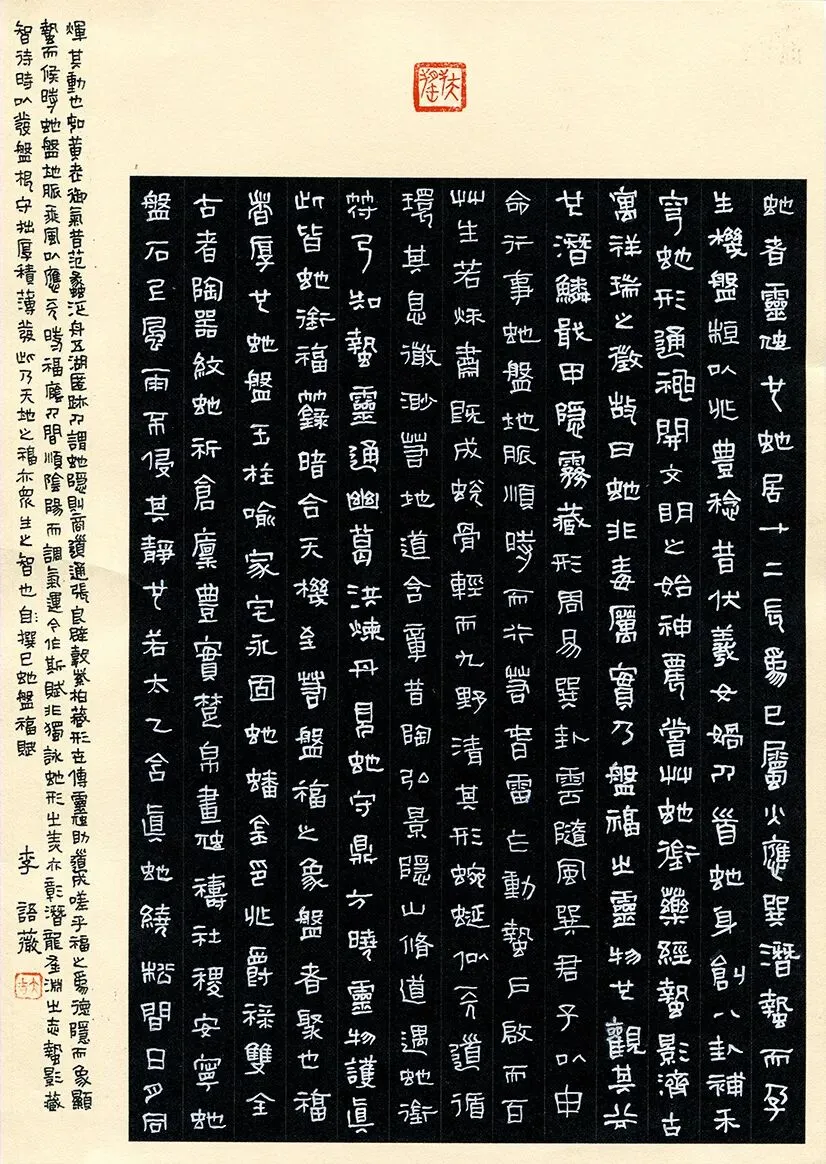 蛇者靈蚺也蛇居十二辰爲巳屬火應巽潛蟄而孕
生機盤桓以兆豊稔昔伏羲女媧乃首蛇身創八卦補禾
穹蛇形通神開文明之始神農嘗艸蛇銜藥經蟄影濟古
寓祥瑞之徵故曰蛇非毒厲實乃盤福之靈物也觀其
也潛鱗戢甲隱霧藏形周易巽卦雲隨風巽君子以申
命行事蛇盤地脈順時而行春雷亡動蟄戶啟而百
艸生若秌肅既成蛻骨輕而九野清其形蜿蜒似天道循
環其息微渺地道含章昔陶弘景隱山修道遇蛇銜
符乃知蟄靈通幽葛洪煉丹見蛇守鼎方曉靈物護眞
此皆蛇銜福籙暗合天機至若盤福之象盤者聚也福
者厚也蛇盤玉柱喻家宅永固蛇蟠金印兆爵祿雙全
古者陶器紋蛇祈倉廩豊實楚帛畫蛇禱社稷安寧蛇
盤石上風雨不侵其靜也若太乙含眞蛇繞松間日月同
煇其動也如黃老御氣昔范蠡泛舟五湖匿跡乃謂蛇隱則商道通張良辟穀紫柏藏形世傳靈蛇助道成嗟乎福之爲德隱而象顯
蟄而候時蛇盤地脈乘風以應天時福廕乃間順陰陽而調氣運今作斯賦非獨詠蛇形之美亦彰潛龍在淵之志蟄影藏
智待時以發盤根守拙厚積薄發此乃天地之福亦衆生之智也自撰巳蛇盤福賦
李語薇